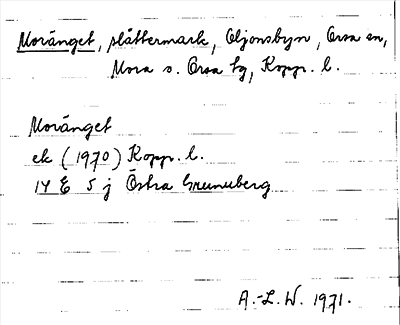 Moränget, slåttermark, Oljonsbyn, Orsa sn,
Mora o. Orsa tg, Kopp. l.
Moränget
ek (1970) Kopp. l.
14 E 5 j Östra Grunuberg
A.-L. W. 1971.